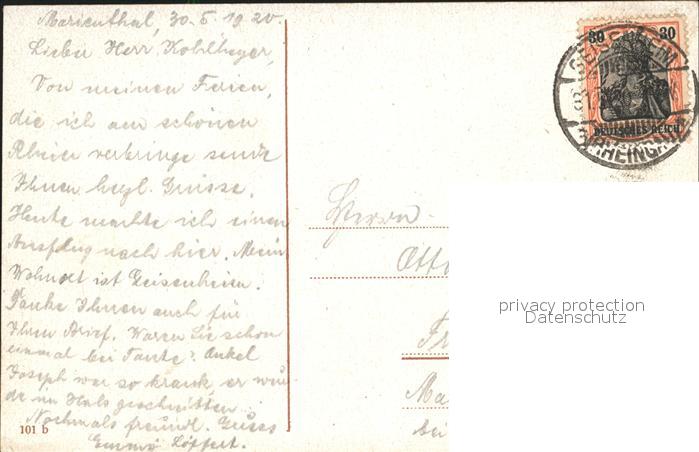 Marienthal, 30.5.1920.
Lieber Herr Kohlheyer,
Von meinen Ferien,
die ich am schönen
Rhein verbringe sende
Ihnen herzl. Grüsse.
Heute machte ich einen
Ausflug nach hier. Mein
Wohnort ist Geisenheim.
Danke Ihnen auch für
Ihren Brief. Waren Sie schon
einmal bei Tante? Onkel
Joseph war so krank, er wur-
de im Hals geschnitten.
Nochmals freundl. Gruss
Emmö Löffert.
101 b
30 30
DEUTSCHES REICH
GEISENHEIM
(RHEINGAU)
Herrn
Otto
Fr
Ma
bei
privacy protection
Datenschutz